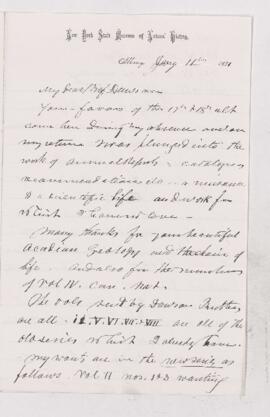 New York State Museum of Natural History,
Albany Jany 16th 1871
My dear Prof Dawson
Your favors of the 17th & 18th ult
came here during my absence and on
my return I was plunged into the
work of annual reports - catalogues
recommendations etc. - a nuisance
to a scientific life and work for
which I
Many thanks for your beautiful
Acadian Geology and the chain of
life. And also for the numbers
of vol IV. Can. Nat.
The vols sent by Dawson Brothers
are all II. V. VI. VII & VIII are all of the
old series which I already have.
My wants are in the new series as
follows Vol II nos. 1 & 3 wanting